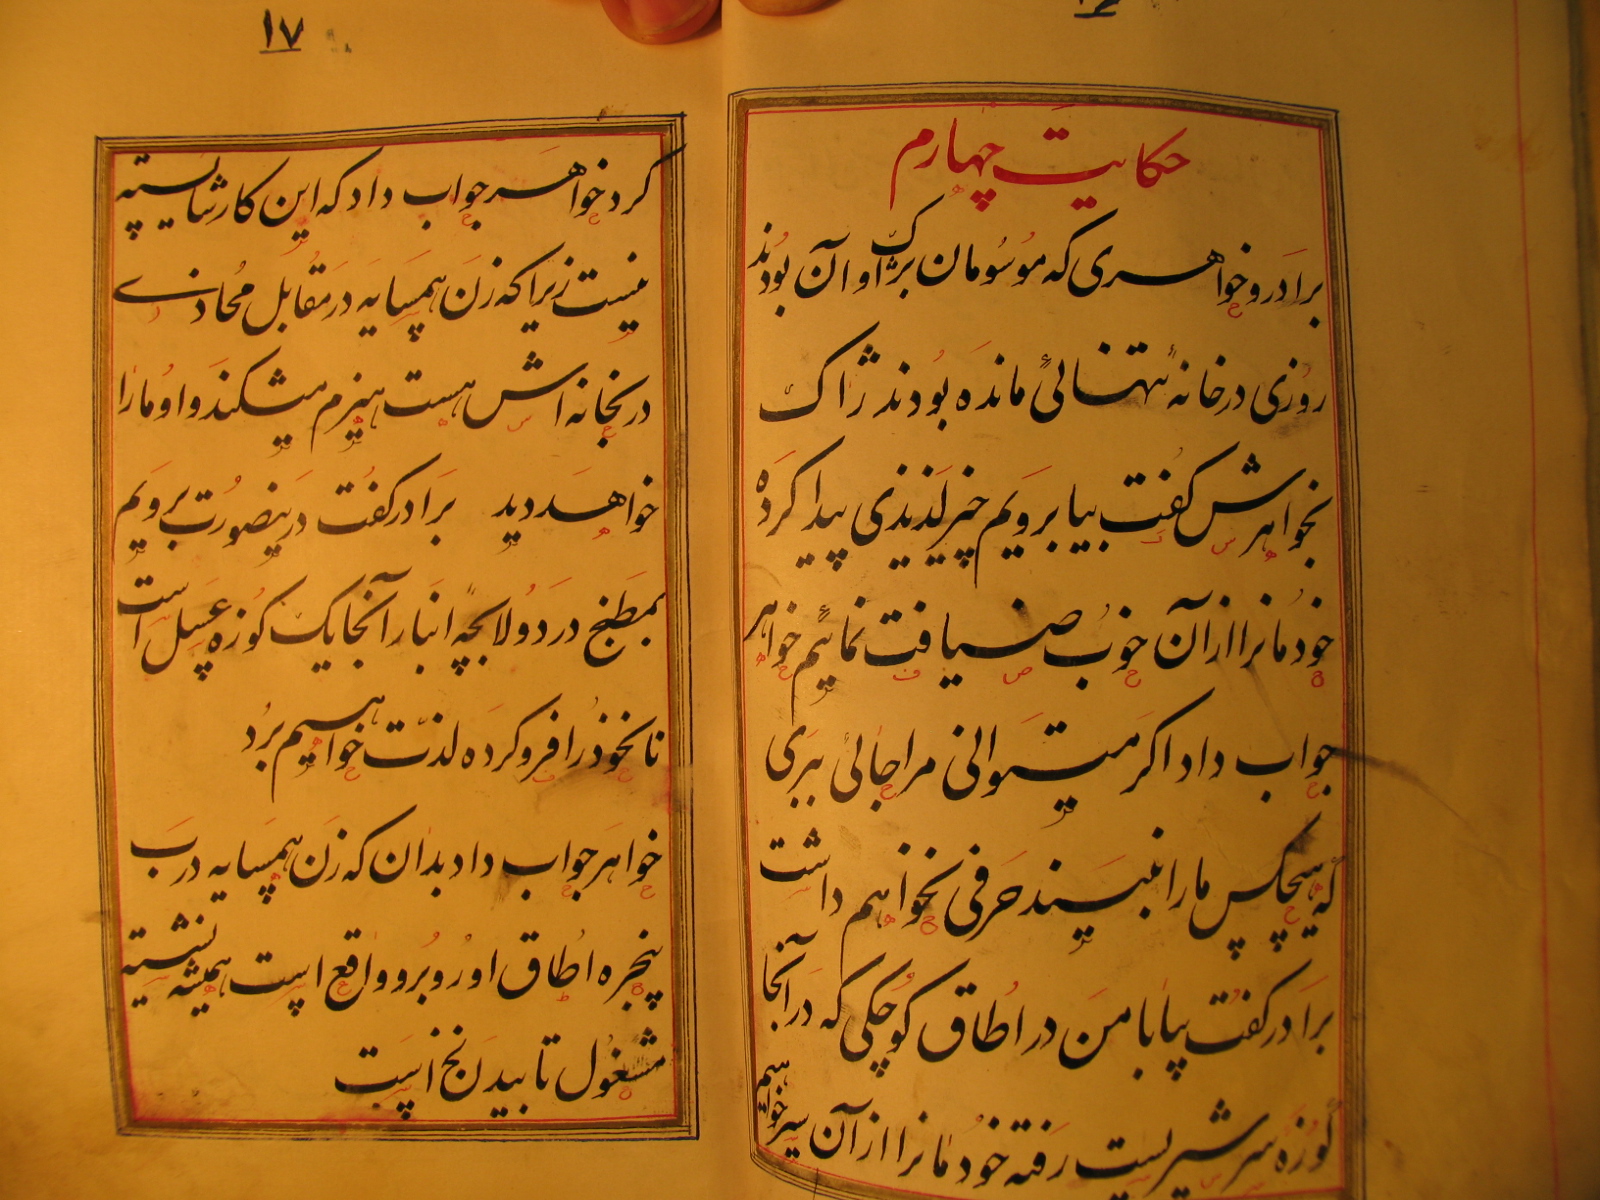 حکایت چهارم
برادر و خواهری که موسومان بژاک و آن بودند
روزی در خانه تنهائی مانده بودند ژاک
بخواهرش گفت بیا برویم چیز لذیذی پیدا کرده
خودمانرا از آن خوب ضیافت نمائیم خواهر
جواب داد اگر میتوانی مرا جائی ببری
که هیچکس ما را نبیند حرفی نخواهم داشت
برادر گفت بیا با من در اطاق کوچکی که در آنجا
کوزه سرشیریست رفته خودمانرا از آن سیر خواهیم
۱۷
کرد خواهر جواب داد که این کار شایسته
نیست زیرا که زن همسایه در مقابل محاذی
در بخانه اش هست هیزم میشکند و او ما را
خواهد دید برادر گفت درینصورت برویم
بمطبخ در دولابچه انبار آنجا یک کوزه عسل است
نان خود را فرو کرده لذت خواهیم برد
خواهر جواب داد بدان که زن همسایه درب
پنجره اطاق او روبرو واقع است همیشه نشسته
مشغول تابیدن نخ است